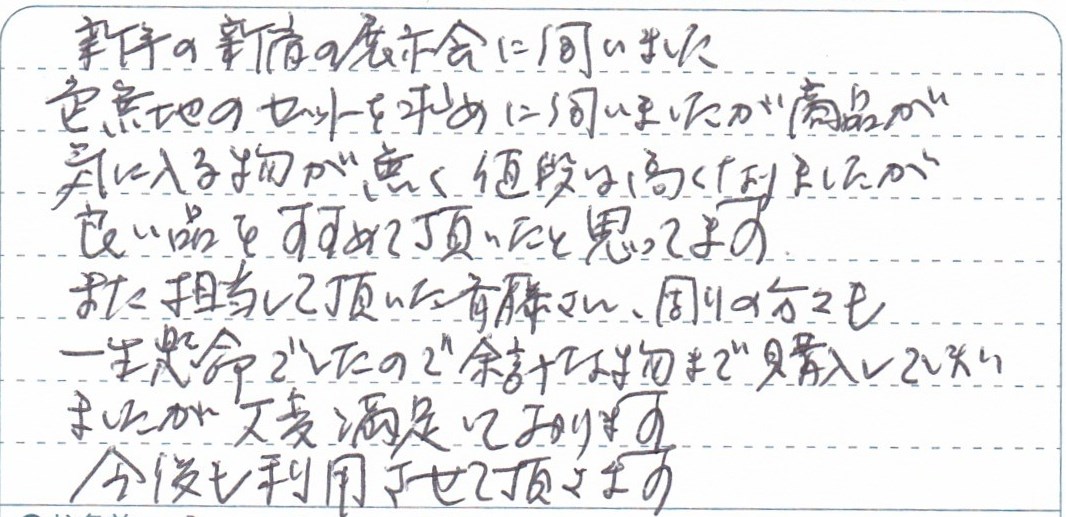 新作の新宿の展示会に伺いました
色無地のセットを求めに伺いましたが商品が
気に入る物が無く値段は高くなりましたが
良い品をすすめて頂いたと思ってます
また担当して頂いた斉藤さん、周りの方々も
一生懸命でしたので余計な物まで購入してしまい
ましたが大変満足しております
今後も利用させて頂きます